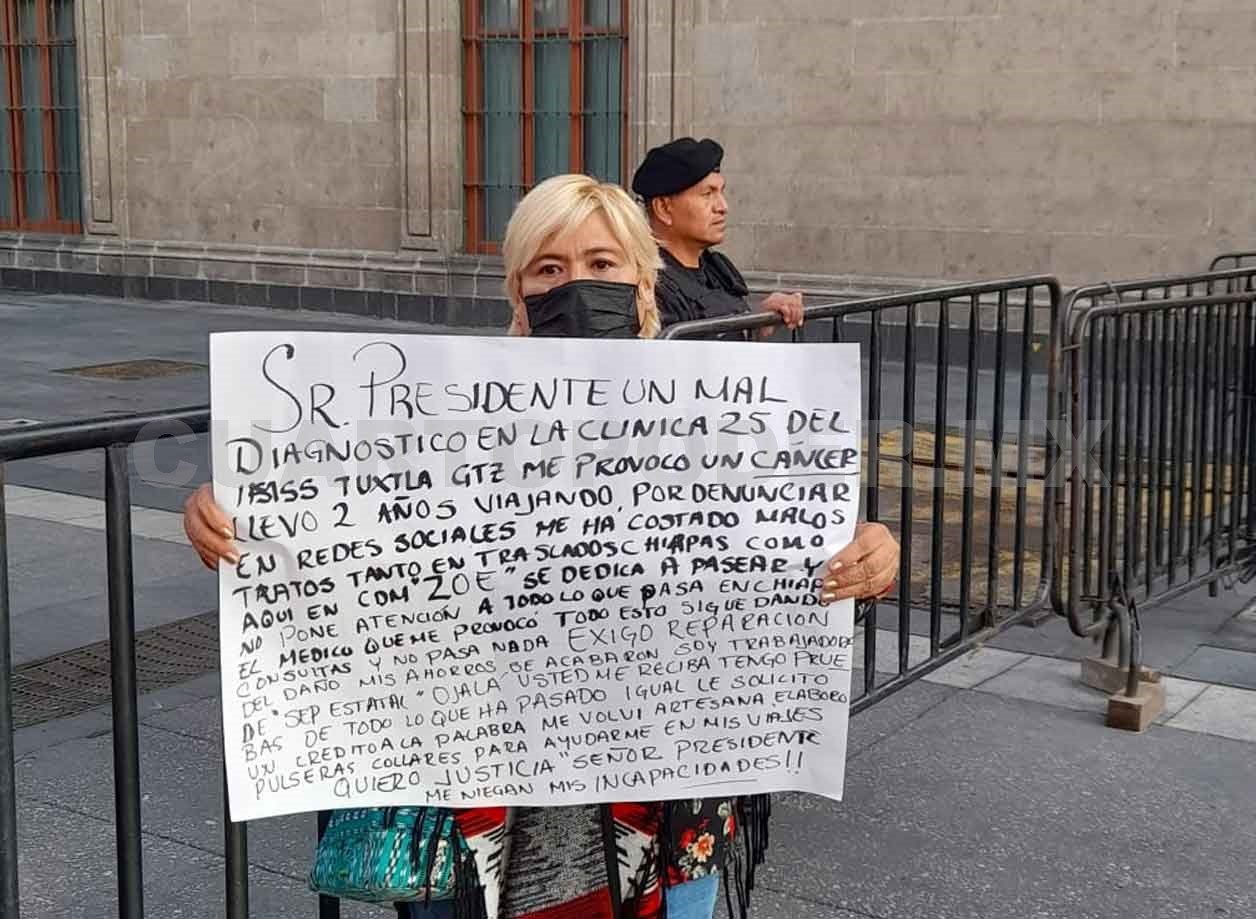 SR. PRESIDENTE UN MAL
DIAGNOSTICO EN LA CLINICA 25 DEL
TUXTLA GTZ ME PROVOCO UN CANCER
LLEVO 2 AÑOS VIAJANDO, POR DENUNCIAR
EN REDES SOCIALES ME HA COSTADO MALOS
TRATOS TANTO EN TRASLADOS CHIAPAS COMO
AQUI EN CDM "ZOE" SE DEDICA A PASEAR Y
NO PONE ATENCIÓN A TODO LO QUE PASA EN CHIAP
EL MEDICO QUE ME PROVOCO TODO ESTO SIGUE DANDO
CONSULTAS Y NO PASA NADA EXIGO REPARACION
DEL DAÑO MIS AHORROS SE ACABARON SOY TRABAJADO
DE "SEP ESTATAL "OJALA USTED ME RECIBA TENGO PRUE
BAS DE TODO LO QUE HA PASADO IGUAL LE SOLICITO
UN CREDITO A LA PALABRA ME VOLVI ARTESANA, ELABORO
PULSERAS COLLARES PARA AYUDARME EN MIS VIAJES
QUIERO JUSTICIA "SEÑOR PRESIDENTE
ME NIEGAN MIS INCAPACIDADES!!